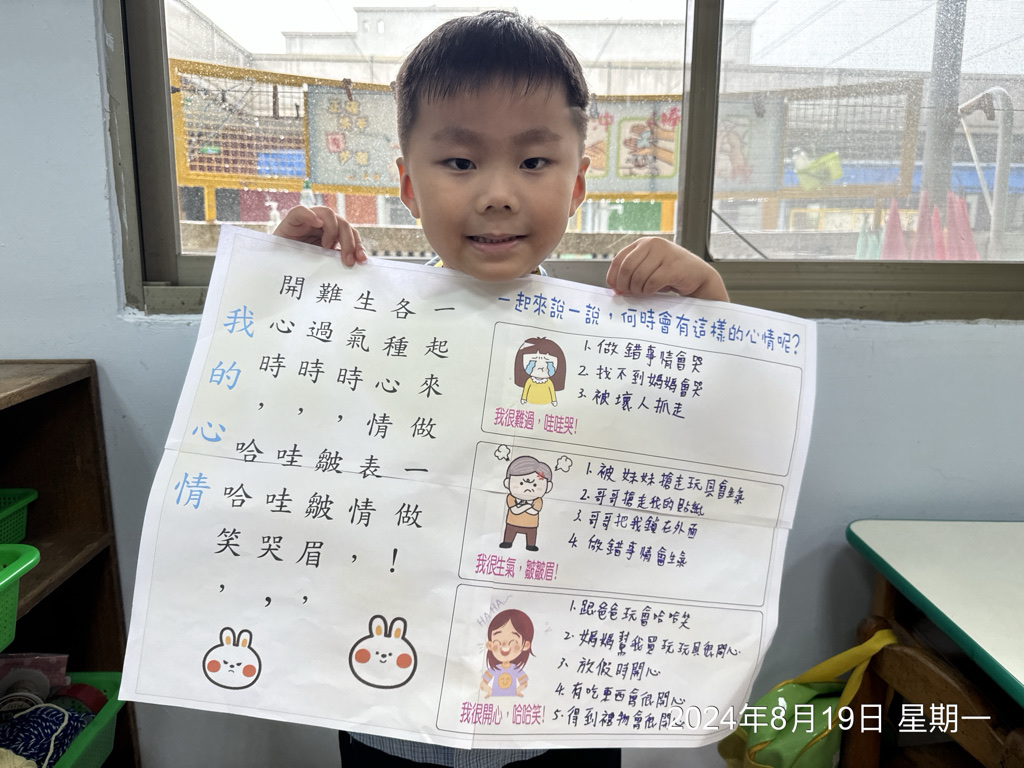 我的心情
開心時，哈哈笑，
難過時，哇哇哭，
生氣時，皺皺眉，
各種心情表情，
一起來做一做！
一起來說一說，何時會有這樣的心情呢?
1. 做錯事情會哭
2. 找不到媽媽會哭
3. 被壞人抓走
我很難過，哇哇哭!
1. 被妹妹搶走玩具會生氣
2. 哥哥搶走我的貼紙
3. 哥哥把我鎖在外面
4. 做錯事情會生氣
我很生氣，皺皺眉!
HAHA
1. 跟爸爸玩會哈哈笑
2. 媽媽幫我買玩玩具很開心
3. 放假時開心
4. 有吃東西會很開心
5. 得到禮物會很開
我很開心，哈哈笑!
2024年8月19日 星期一